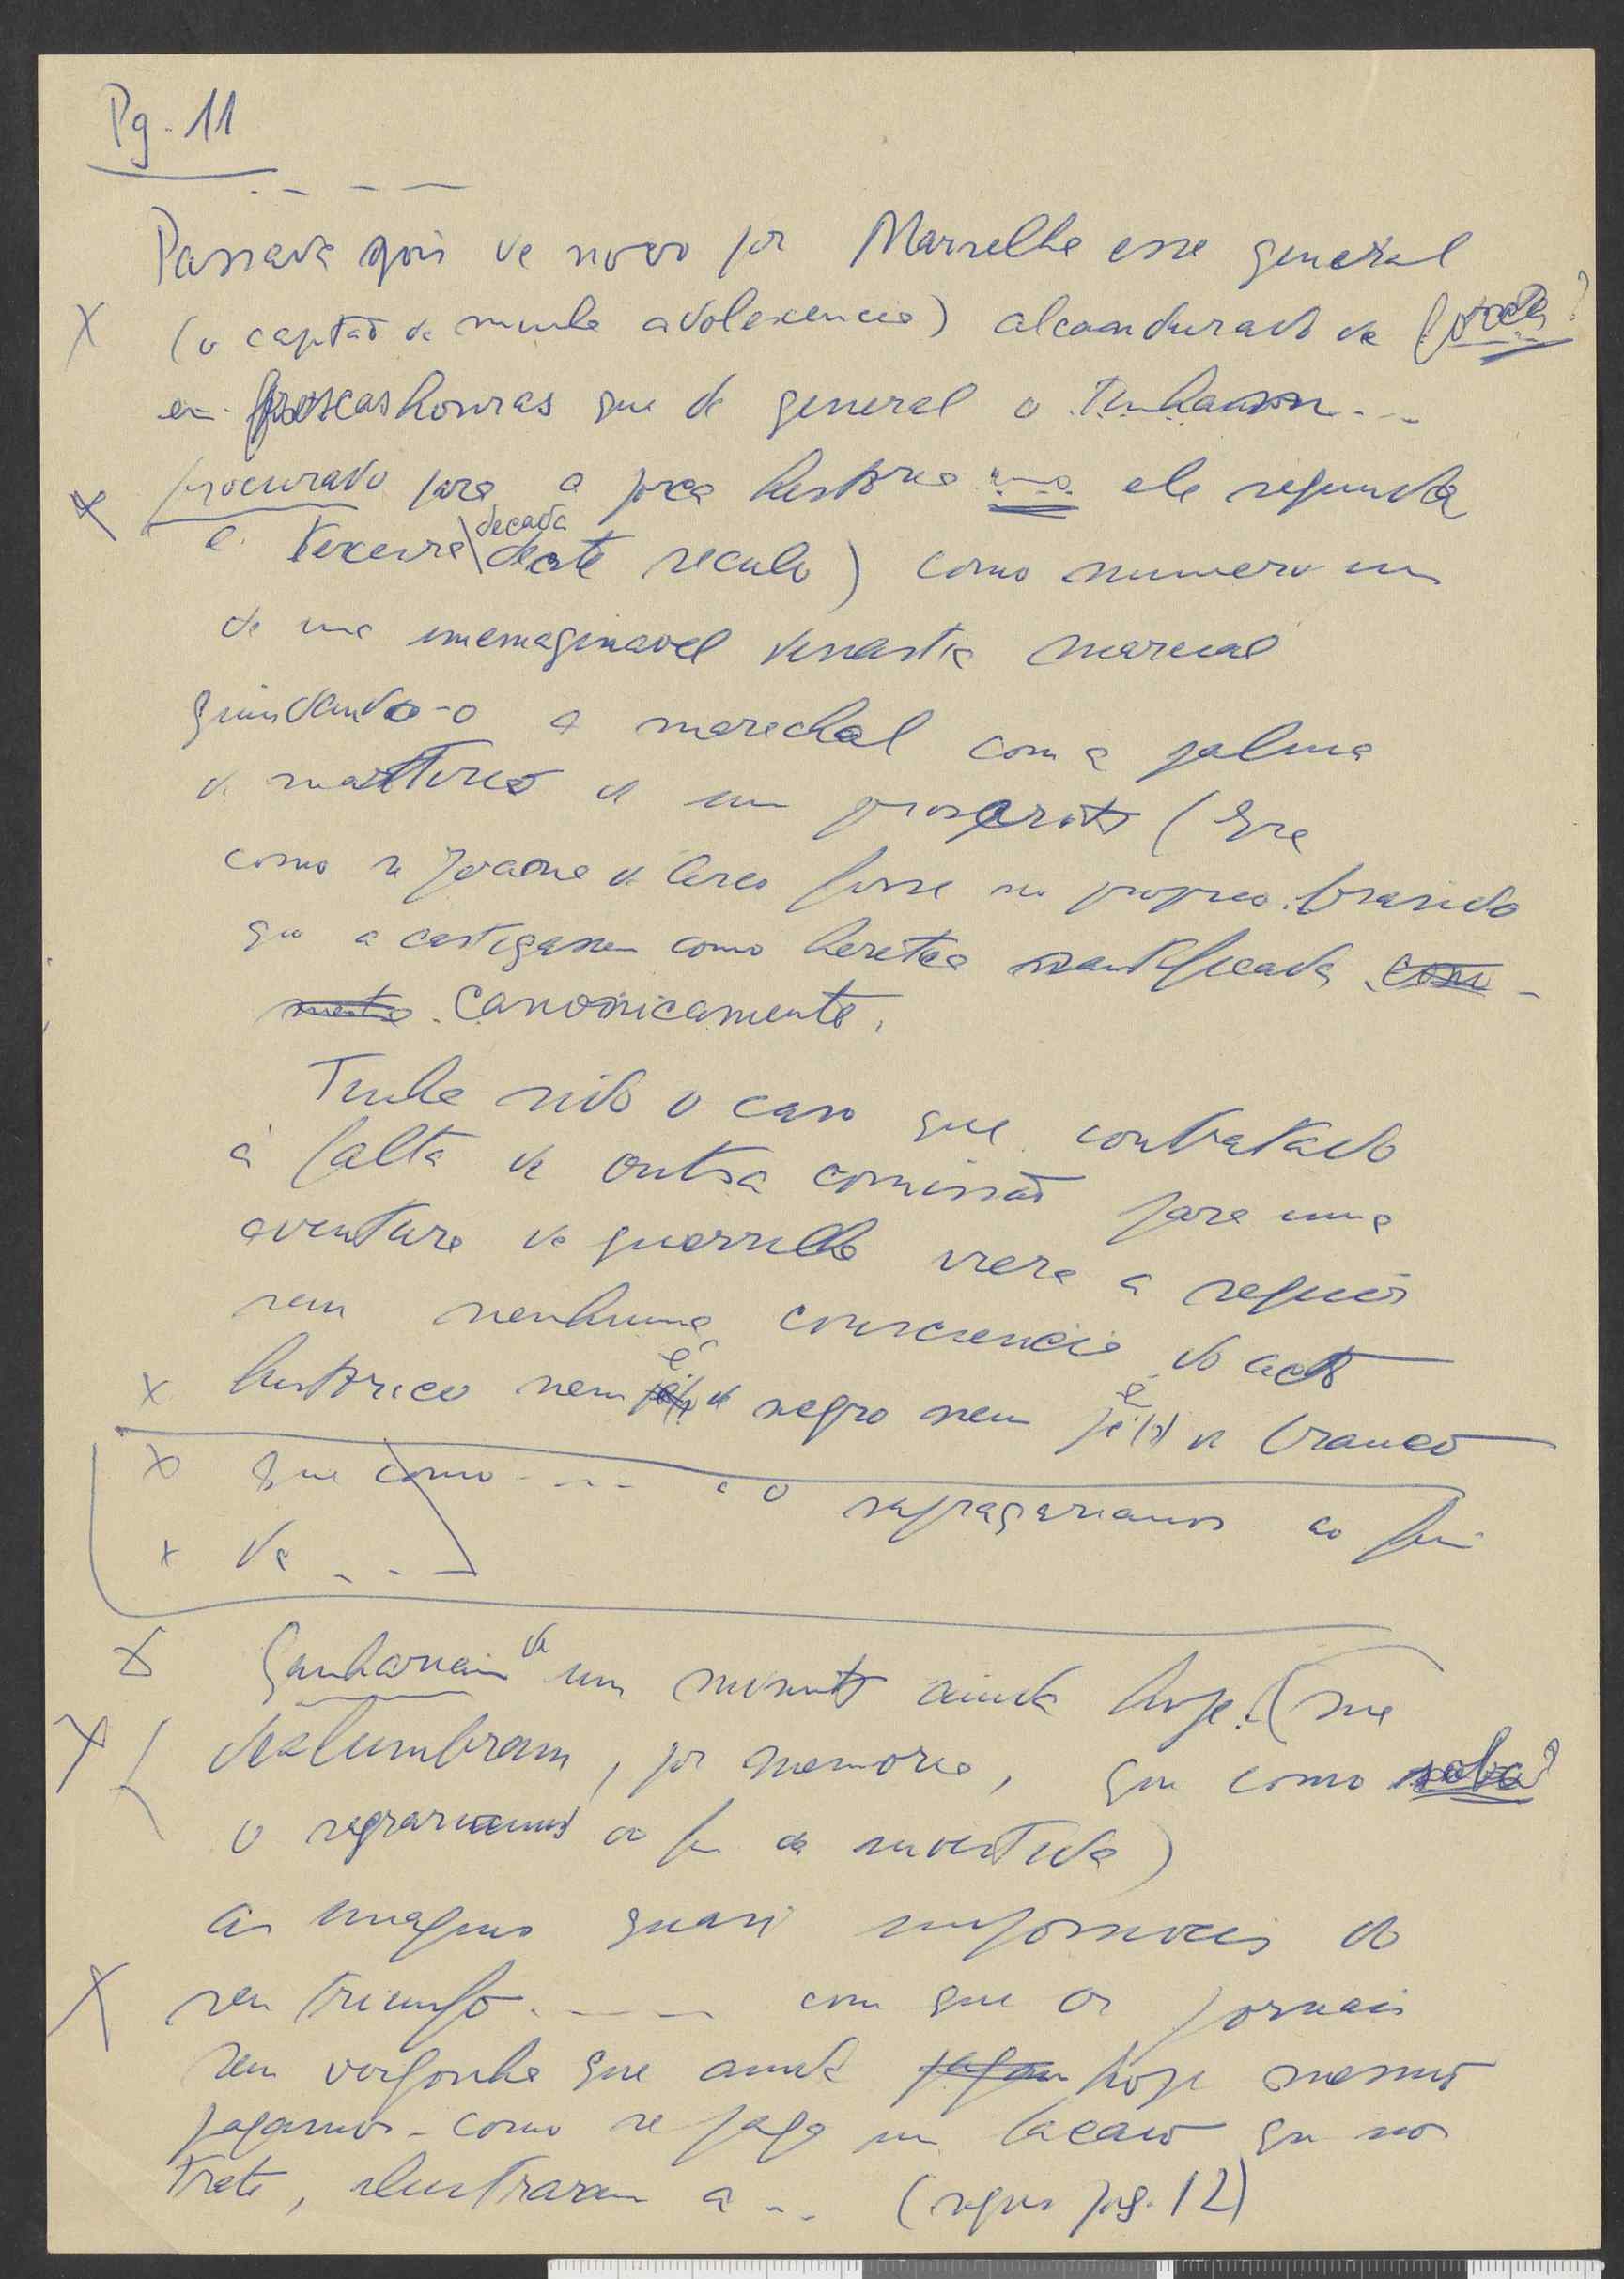 Pg. 11
Passava pois de novo por Marselha esse general
(o capitão da minha adolescencia) alcandorado de
em frescas honras que de general o tinham ...
procurado para a força historica ele segunda
e terceira decada deste seculo) como numero um
de uma inimaginavel dinastia marcial
guindando-o a marechal com a palma
do martirio de um proscrito (que
como se Joana de Arco fosse no proprio brasido
que a castigassem como heretica santificada com
canonicamente.
Tinha sido o caso que contratado
à falta de outra comissão para uma
aventura de guerrilha viera a seguir
sem nenhuma consciencia do acto
historico nem é de negro nem é de branco
que como ... o sufragariamos ao fim
da ...
Ganhariam de um minuto ainda hoje! (me
deslumbram, por memoria, que como
o sagrariamos ao fim da investida)
as imagens quasi
do
seu triunfo ..... com que os jornais
sem vergonha que ainda hoje mesmo
pagamos - como se paga um lacaio que nos
trate, ilustraram a ... (segue pag. 12)